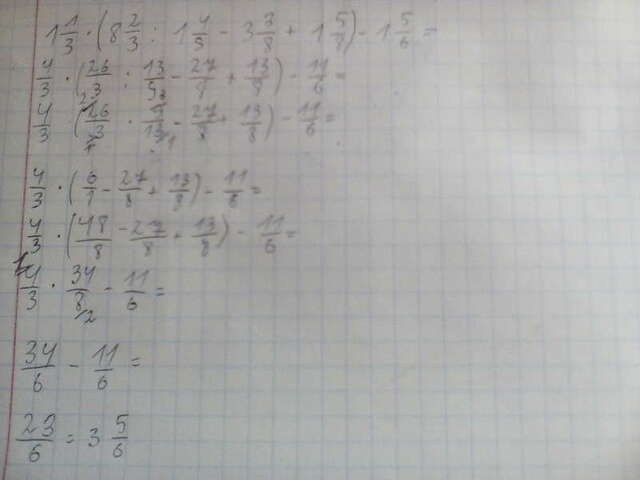 1 1/3 · (8 2/3 : 1 4/5 - 3 3/8 + 1 5/8) - 1 5/6 =
4/3 · (26/3 : 13/5 - 27/8 + 13/8) - 11/6 =
4/3 · (26/3 · 5/13 - 27/8 + 13/8) - 11/6 =
4/3 · (6/1 - 27/8 + 13/8) - 11/6 =
4/3 · (48/8 - 27/8 + 13/8) - 11/6 =
4/3 · 34/8 - 11/6 =
34/6 - 11/6 =
23/6 = 3 5/6